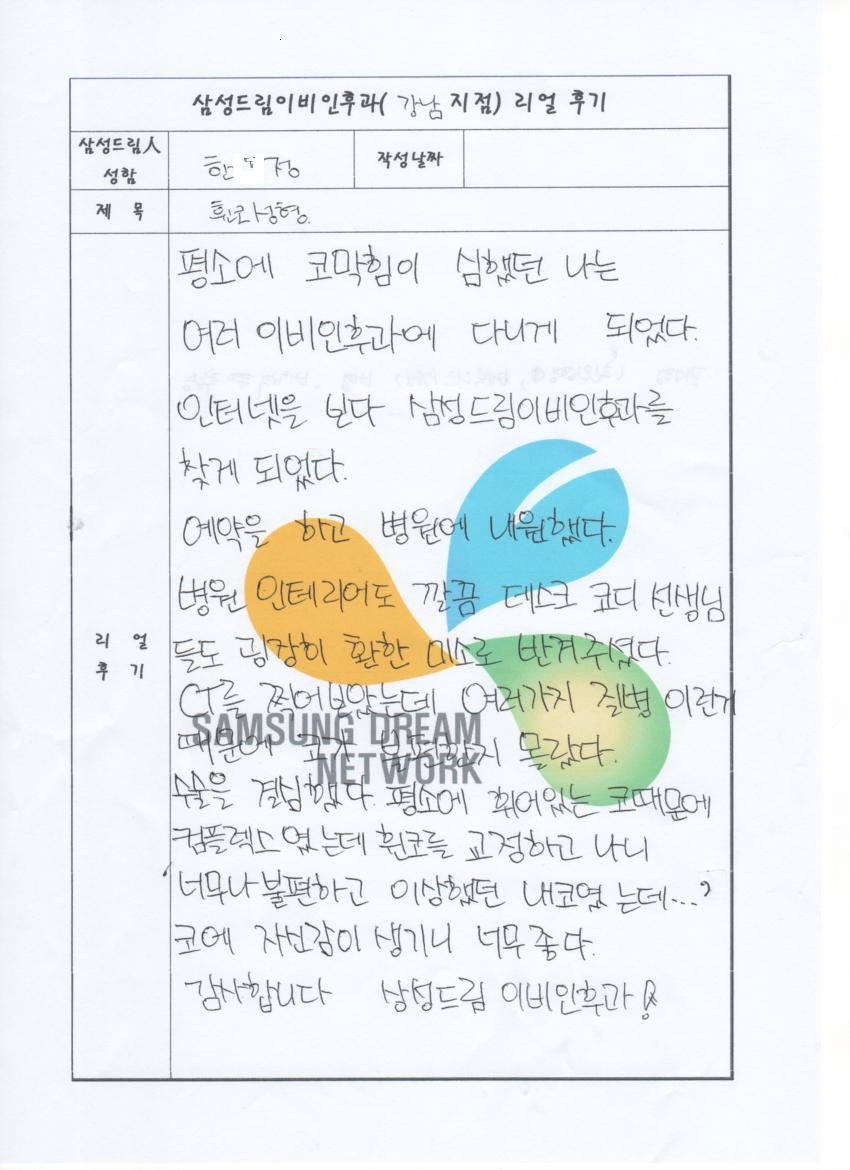 삼성드림이비인후과( 강남 지점) 리얼 후기
삼성드림人 성함
한 정
작성날짜
제 목
휜코성형.
리 얼 후 기
평소에 코막힘이 심했던 나는
여러 이비인후과에 다니게 되었다.
인터넷을 보다 삼성드림이비인후과를
찾게 되었다.
예약을 하고 병원에 내원했다.
병원 인테리어도 깔끔 데스크 코디 선생님
들도 굉장히 환한 미소로 반겨주셨다.
CT를 찍어보았는데 여러가지 질병 이런게
때문에 코가 불편한지 몰랐다.
수술을 결심했다. 평소에 휘어있는 코때문에
컴플렉스 였는데 휜코를 교정하고 나니
너무나 불편하고 이상했던 내코였 는데...?
코에 자신감이 생기니 너무 좋다.
감사합니다 삼성드림 이비인후과!
SAMSUNG DREAM
NETWORK